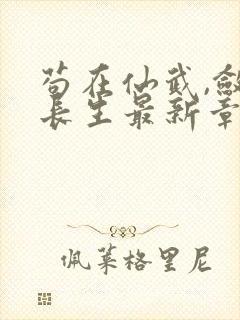 苟在仙武,敛
长生最新章
佩莱格里尼